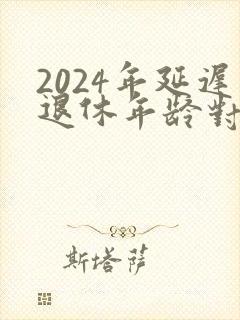 2024年延遲
退休年齡對
斯塔薩